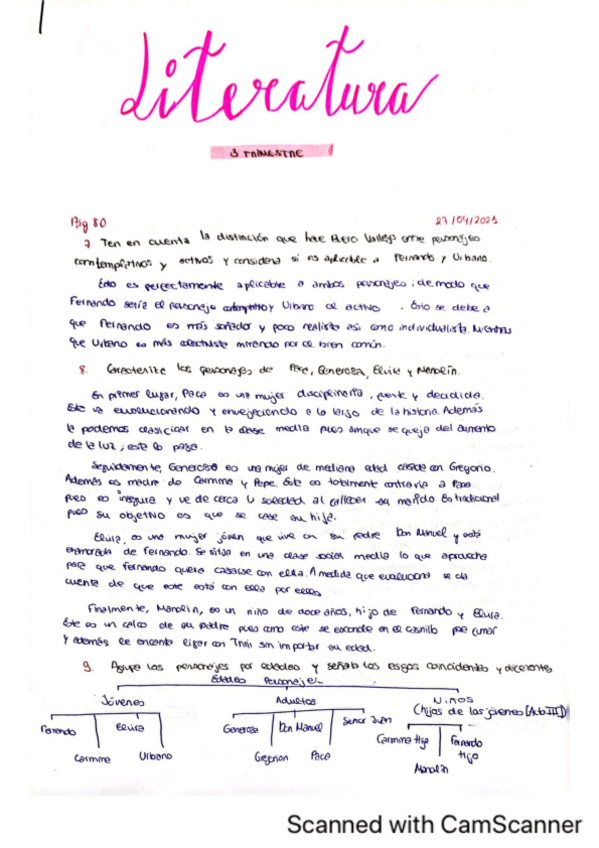 Literatura
3 TRIMESTRE
Pág 80
27/04/2021
7 Ten en cuenta la distinción que hace Buero Vallejo entre personajes
contemplativos y activos y considera si es aplicable a Fernando y Urbano.
Esto es perfectamente aplicable a ambos personajes; de modo que
Fernando sería el personaje contemplativo y Urbano el activo. Esto se debe a
que Fernando es más soñador y poco realista así como individualista. Mientras
que Urbano es más efectivista mirando por el bien común.
8. Caracteriza los personajes de Paca, Generosa, Elvira y Manolín.
En primer lugar, Paca es una mujer disciplinaria, fuerte y decidida.
Esta va evolucionando y envejeciendo a lo largo de la historia. Además
la podemos clasificar en la clase media pues aunque se queja del aumento
de la luz, esta lo paga.
Seguidamente, Generosa es una mujer de mediana edad casada con Gregorio.
Además es madre de Carmina y Pepe. Esta es totalmente contraria a Paca
pues es insegura y ve de cerca la soledad al fallecer su marido. Es tradicional
pues su objetivo es que se case su hija.
Elvira, es una mujer jóven que vive con su padre Don Manuel y está
enamorada de Fernando. Se sitúa en una clase social media lo que aprovecha
para que Fernando quiera casarse con ella. A medida que evoluciona se da
cuenta de que este está con ella por
Finalmente, Manolín, es un niño de doce años, hijo de Fernando y Elvira.
Este es un calco de su padre pues como este se esconde en el casinillo para fumar
y además le encanta ligar con Trini sin importar su edad.
9. Agrupa los personajes por edades y señala los rasgos coincidentes y diferentes
Edades Personajes
Jóvenes
Adultos
Niños
(hijos de los jóvenes [Acto III])
Fernando
Elvira
Generosa
Don Manuel
Señor Juan
Carmina Hija
Fernando
Hijo
Carmina
Urbano
Gregorio
Paca
Manolín
Scanned with CamScanner